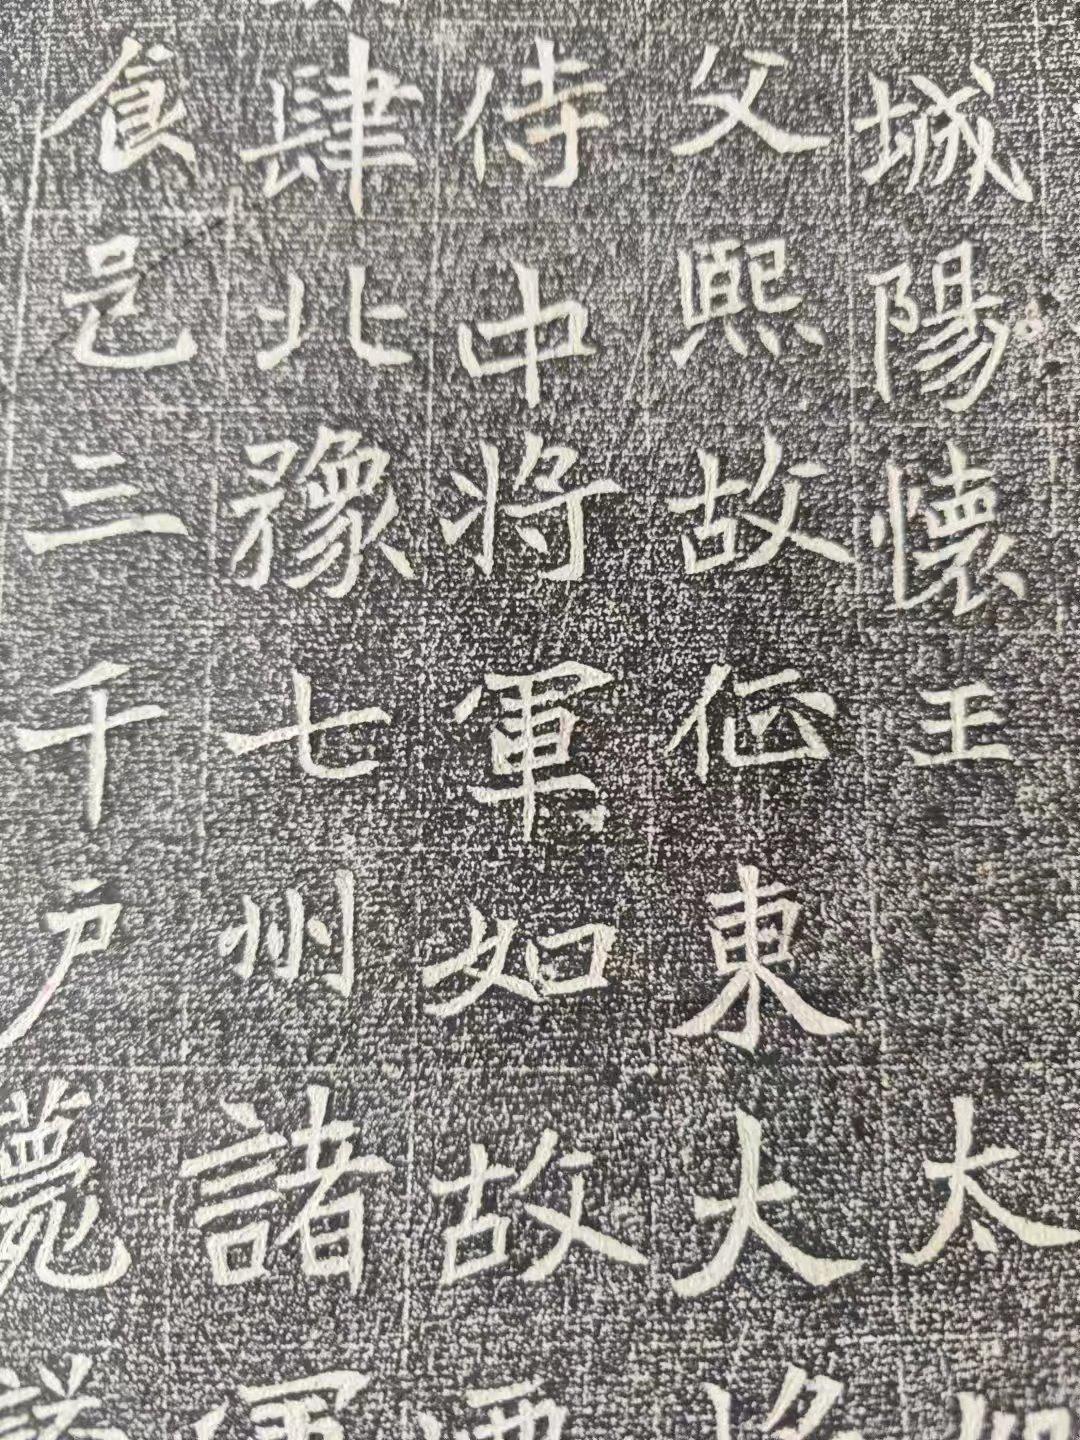 城陽懷王太
父熙故征東大將
侍中將軍如故
肆北豫七州諸軍
食邑三千戶薨謚